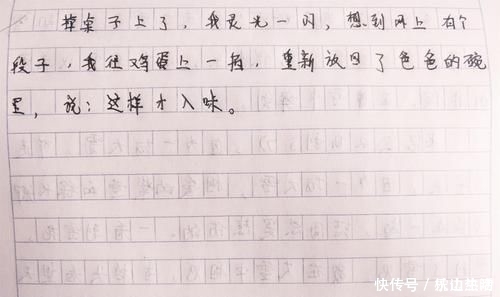 掉桌子上了，我灵光一闪，想到网上有个
段子，我往鸡蛋上一拍，重新放回了色色的碗
里，说：这样才入味。
快传号/